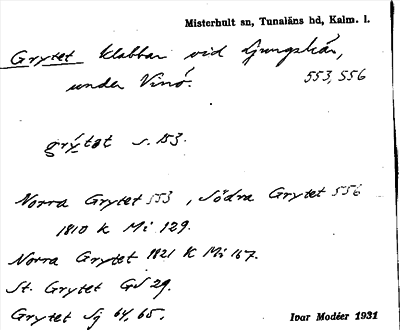 Misterhult sn, Tunaläns hd, Kalm. l.
Grytet klabbar vid Ljungskär,
under Vinö. 553, 556
grýtət s. 153.
Norra Grytet 553, Södra Grytet 556
1810 K Mi 129.
Norra Grytet 1821 K Mi 167.
St. Grytet GS 29.
Grytet Sj 64, 65.
Ivar Modéer 1931